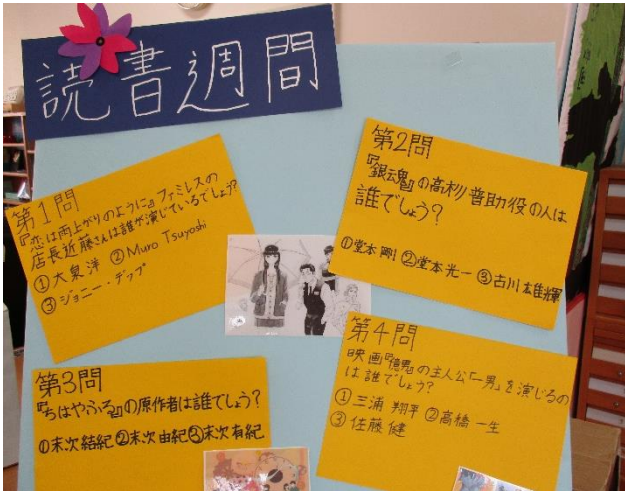 読書週間
第1問
『恋は雨上がりのように』ファミレスの
店長近藤さんは誰が演じているでしょう？
①大泉洋 ②Muro Tsuyoshi
③ジョニー・デップ
第2問
『銀魂』の高杉晋助役の人は
誰でしょう？
①堂本剛 ②堂本光一 ③古川雄輝
第3問
『ちはやふる』の原作者は誰でしょう？
①末次結紀 ②末次由紀 ③末次有紀
第4問
映画『億男』の主人公「一男」を演じるの
は誰でしょう？
①三浦 翔平 ②高橋一生
③佐藤 健